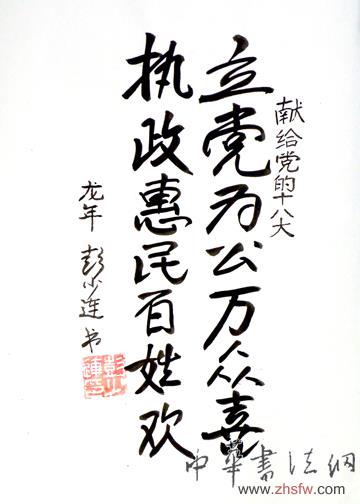 献给党的十八大
立党为公万众喜
执政惠民百姓欢
龙年 彭小莲 书
彭小蓮印
中华書法網
www.zhsfw.com